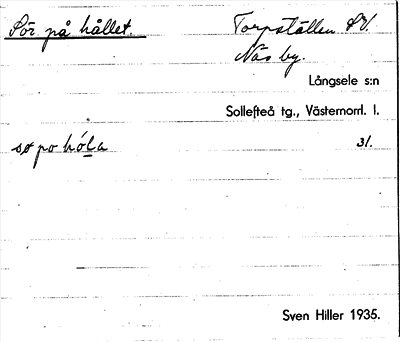 Sör på hållet. Torpställen SV.
Näs by.
Långsele s:n
Sollefteå tg., Västernorrl. l.
sø po hóla 31.
Sven Hiller 1935.